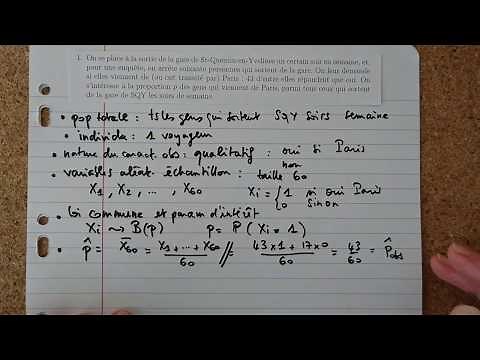 1. On se place à la sortie de la gare de St-Quentin-en-Yvelines un certain soir en semaine, et,
pour une enquête, on arrête soixante personnes qui sortent de la gare. On leur demande
si elles viennent de (ou ont transité par) Paris : 43 d'entre elles répondent que oui. On
s'intéresse à la proportion p des gens qui viennent de Paris, parmi tous ceux qui sortent
de la gare de SQY les soirs de semaine.
• pop totale : ts les gens qui sortent SQY soirs semaine
• individu : 1 voyageur
• nature du caract. obs : qualitatif : oui si Paris
non
• variables aléat. échantillon : taille 60
X1, X2, ..., X60 Xi = { 1 si oui Paris
0 sinon
• loi commune et param d'intérêt
Xi ⤳ B(p) p = P(Xi = 1)
• p̂ = X̄60 = (X1 + ... + X60)/60 // = (43×1 + 17×0)/60 = 43/60 = p̂obs